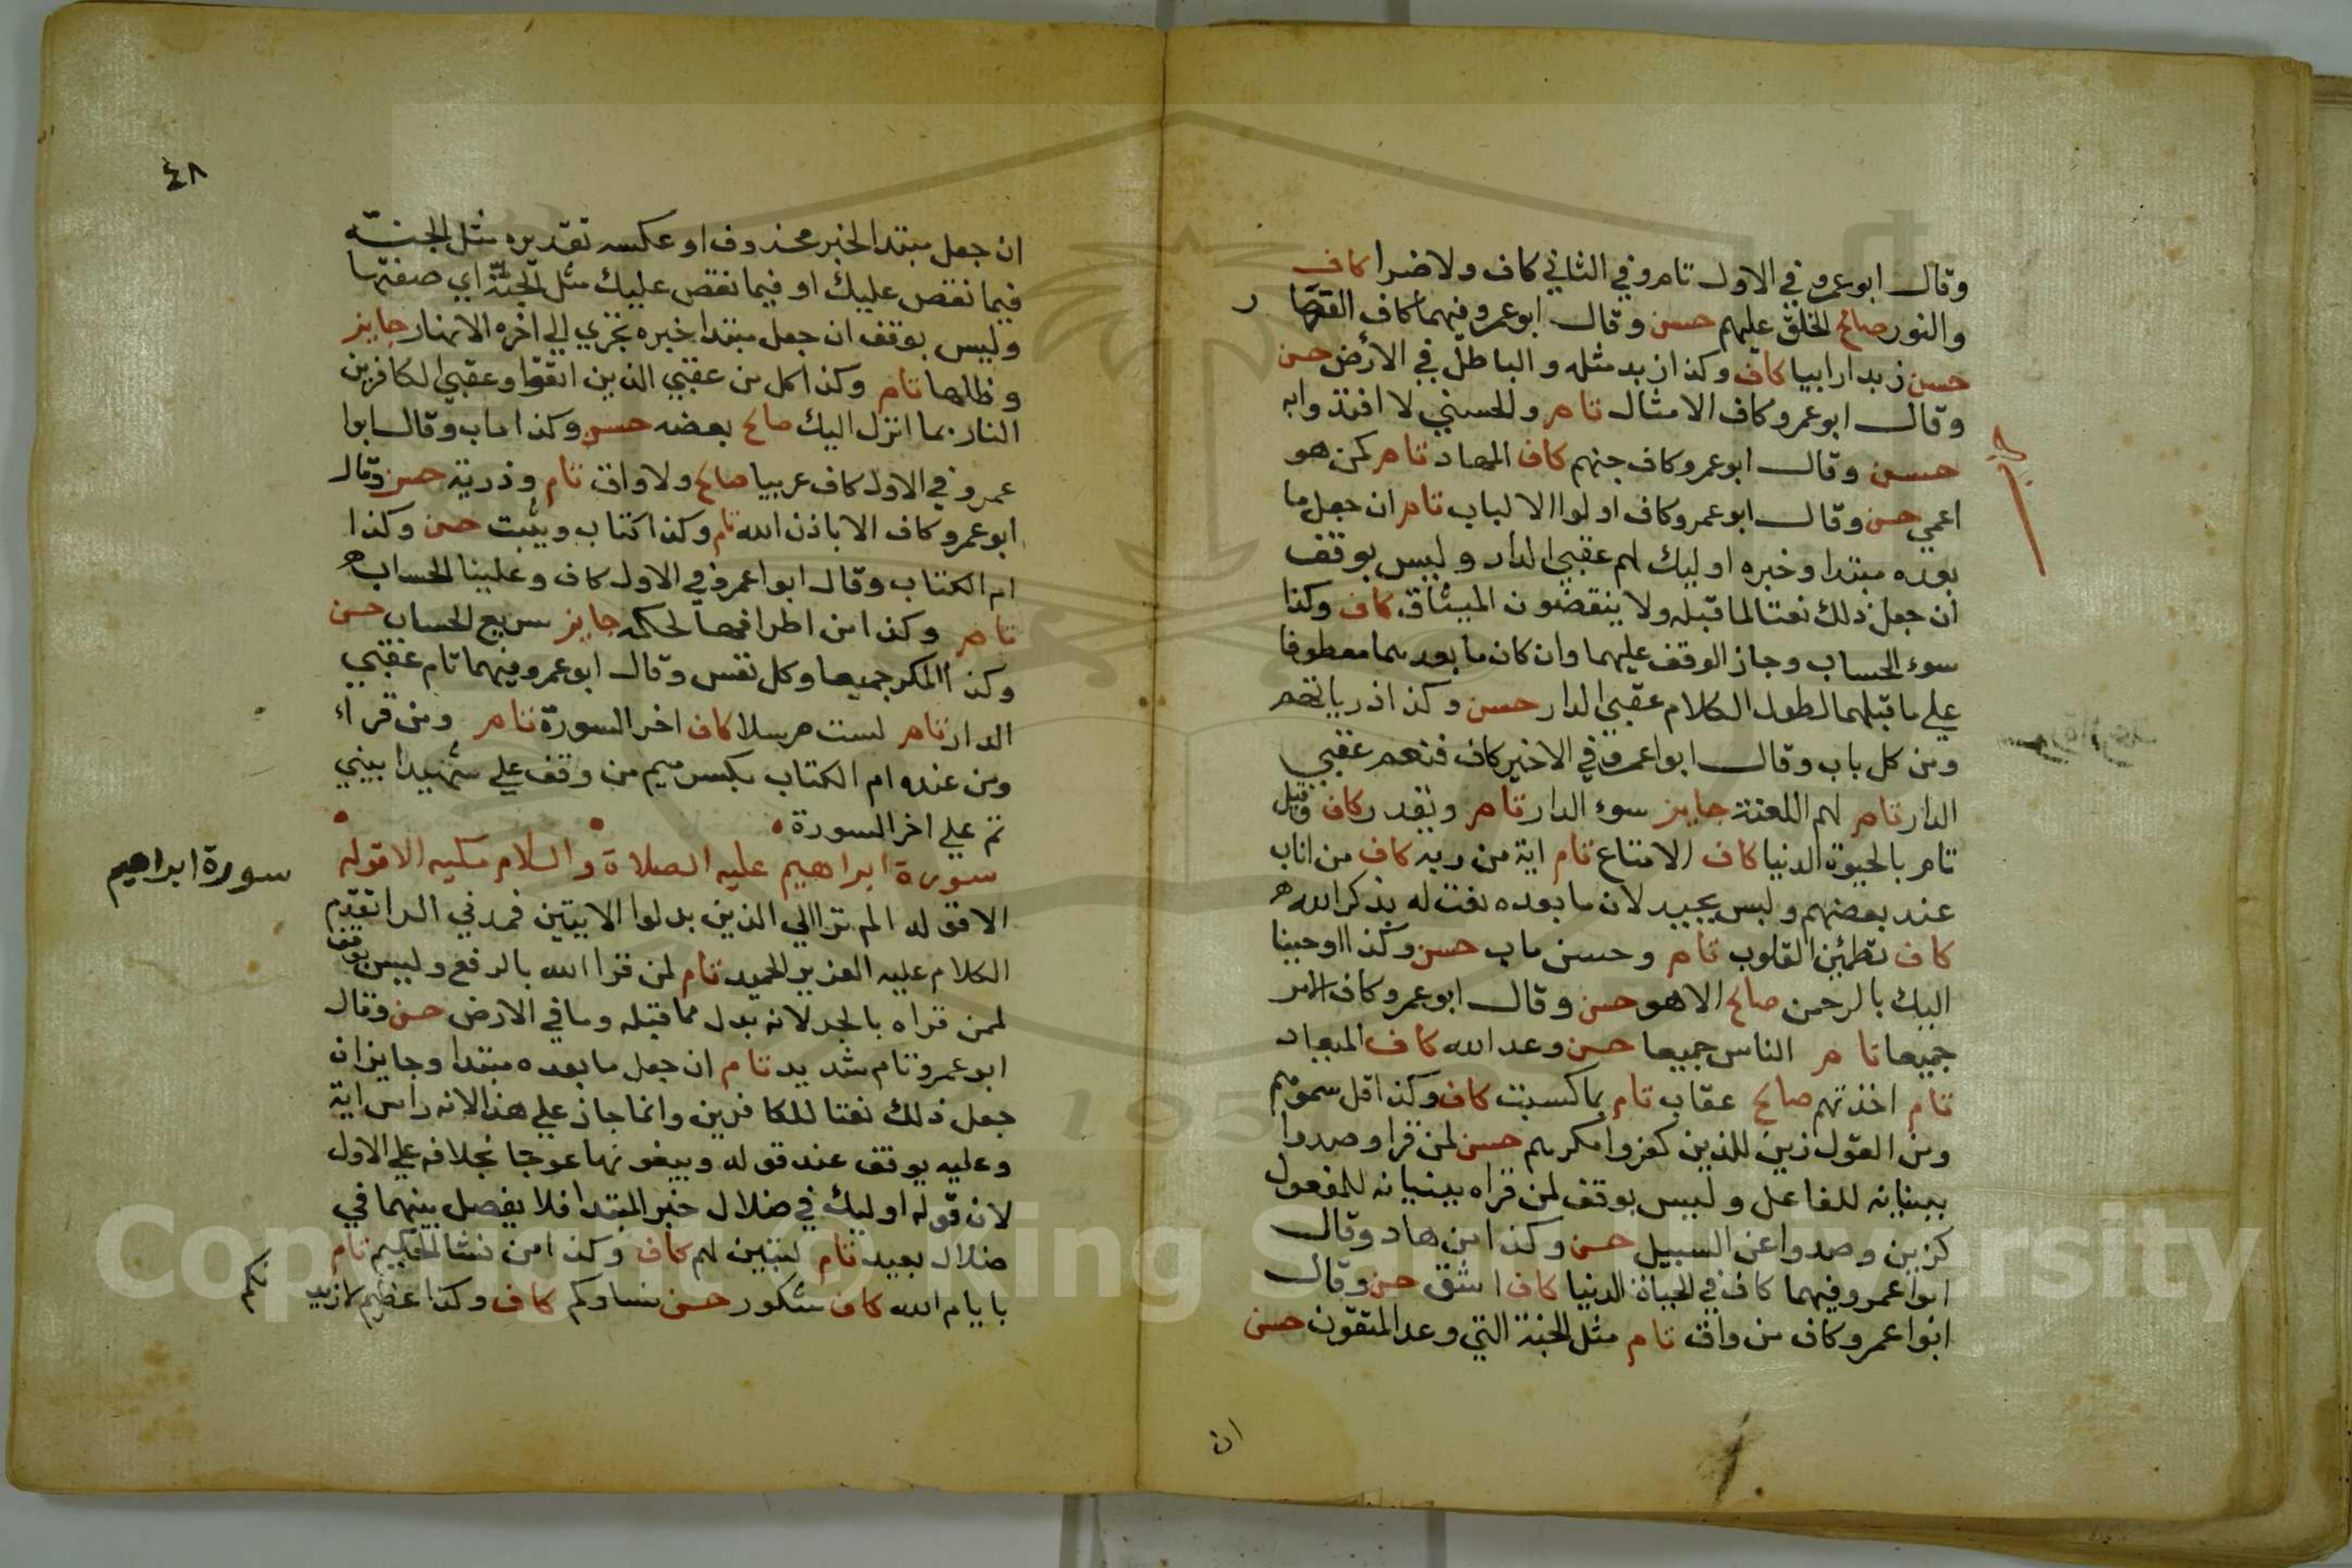 وقال ابو عمرو في الاول تام وفي الثاني كاف ولا ضرا كاف
والنور صالح الخلق عليهم حسن وقال ابو عمرو فيهما كاف القها ر
حسن زبدا رابيا كاف وكذا زبد مثله والباطل في الأرض حسن
وقال ابو عمرو كاف الامثال تام والحسني لا افتدوا به
حسن وقال ابو عمرو كاف جهنم كاف المهاد تام كمن هو
اعمي حسن وقال ابو عمرو كاف اولوا الالباب تام ان جعل ما
بعده مبتدا وخبره اوليك لهم عقبي الدار وليس بوقف
ان جعل ذلك نعتا لما قبله ولا ينقضون الميثاق كاف وكذا
سوء الحساب وجاز الوقف عليهما وان كان ما بعدهما معطوفا
علي ما قبلهما لطول الكلام عقبي الدار حسن وكذا ذرياتهم
ومن كل باب وقال ابوا عمرو في الاخير كاف فنعم عقبي
الدار تام لهم اللعنة جايز سوء الدار تام ويقدر كاف وقيل
تام بالحيوة الدنيا كاف الامتاع تام اية من ربه كاف من اناب
عند بعضهم وليس بجيد لان ما بعده نعت له بذكر الله
كاف تطمئن القلوب تام وحسن ماب حسن وكذا اوحينا
اليك بالرحمن صالح الا هو حسن وقال ابو عمرو كاف الامر
جميعا تام الناس جميعا حسن وعد الله كاف الميعاد
تام اخذتهم صالح عقاب تام بما كسبت كاف وكذا قل سموهم
ومن القول زين للذين كفروا مكرهم حسن لمن قرا وصدوا
ببنايه للفاعل وليس بوقف لمن قراه ببنيانه للمفعول
كزين وصدوا عن السبيل حسن وكذا من هاد وقال
ابوا عمرو فيهما كاف في الحياة الدنيا كاف اشق حسن وقال
ابوا عمرو كاف من واق تام مثل الجنة التي وعد المتقون حسن
ان
٤٨
ان جعل مبتدا لخبر محذوف او عكسه تقديره مثل الجنة
فيما نقص عليك او فيما نقص عليك مثل الجنة اي صفتها
وليس بوقف ان جعل مبتدا خبره تجري الي اخره الانهار جايز
وظلها تام وكذا كل من عقبي الذين اتقوا وعقبي الكافرين
النار بما انزل اليك صالح بعضه حسن وكذا ماب وقال ابوا
عمرو في الاول كاف عربيا صالح ولا واق تام وذرية حسن وقال
ابو عمرو كاف الا باذن الله تام وكذا كتاب ويثبت حسن وكذا
ام الكتاب وقال ابوا عمرو في الاول كاف وعلينا الحساب
تام وكذا من اطرافها لحكمه جايز سريع الحساب حسن
وكذا المكر جميعا وكل نفس وقال ابو عمرو فيهما تام عقبي
الدار تام لست مرسلا كاف اخر السورة تام ومن قراء
ومن عنده ام الكتاب بكسر ميم من وقف علي شهيدا بيني
ثم علي اخر السورة
سورة ابراهيم عليه الصلاة والسلام مكيه الا قوله
سورة ابراهيم
الا قوله الم تر الي الذين بدلوا الايتين فمدني الر تقدم
الكلام عليه العزيز الحميد تام لمن قرا الله بالرفع وليس بوقف
لمن قراه بالجر لانه بدل مما قبله وما في الارض حسن وقال
ابو عمرو تام شديد تام ان جعل ما بعده مبتدا وجايز ان
جعل ذلك نعتا للكافرين وانما جاز علي هذا لانه راس اية
وعليه يوقف عند قوله ويبغونها عوجا بخلافه علي الاول
لان قوله اوليك في ضلال خبر المبتدا فلا يفصل بينهما في
ضلال بعيد تام ليبين لهم كاف وكذا من نشا الحكيم تام
بايام الله كاف شكور حسن نساوكم كاف وكذا عظيم لازيد نكم